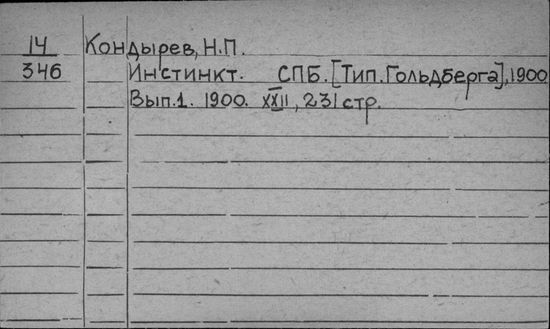 14 Кондырев, Н.П.
346 Инстинкт. СПБ. [Тип. Гольдберга], 1900
Вып.1. 1900. XXII, 231 стр.